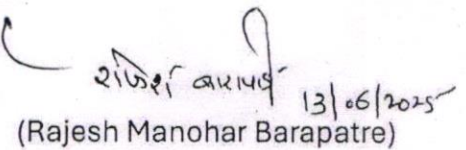 राजेश बारापात्रे 13/06/2025
(Rajesh Manohar Barapatre)